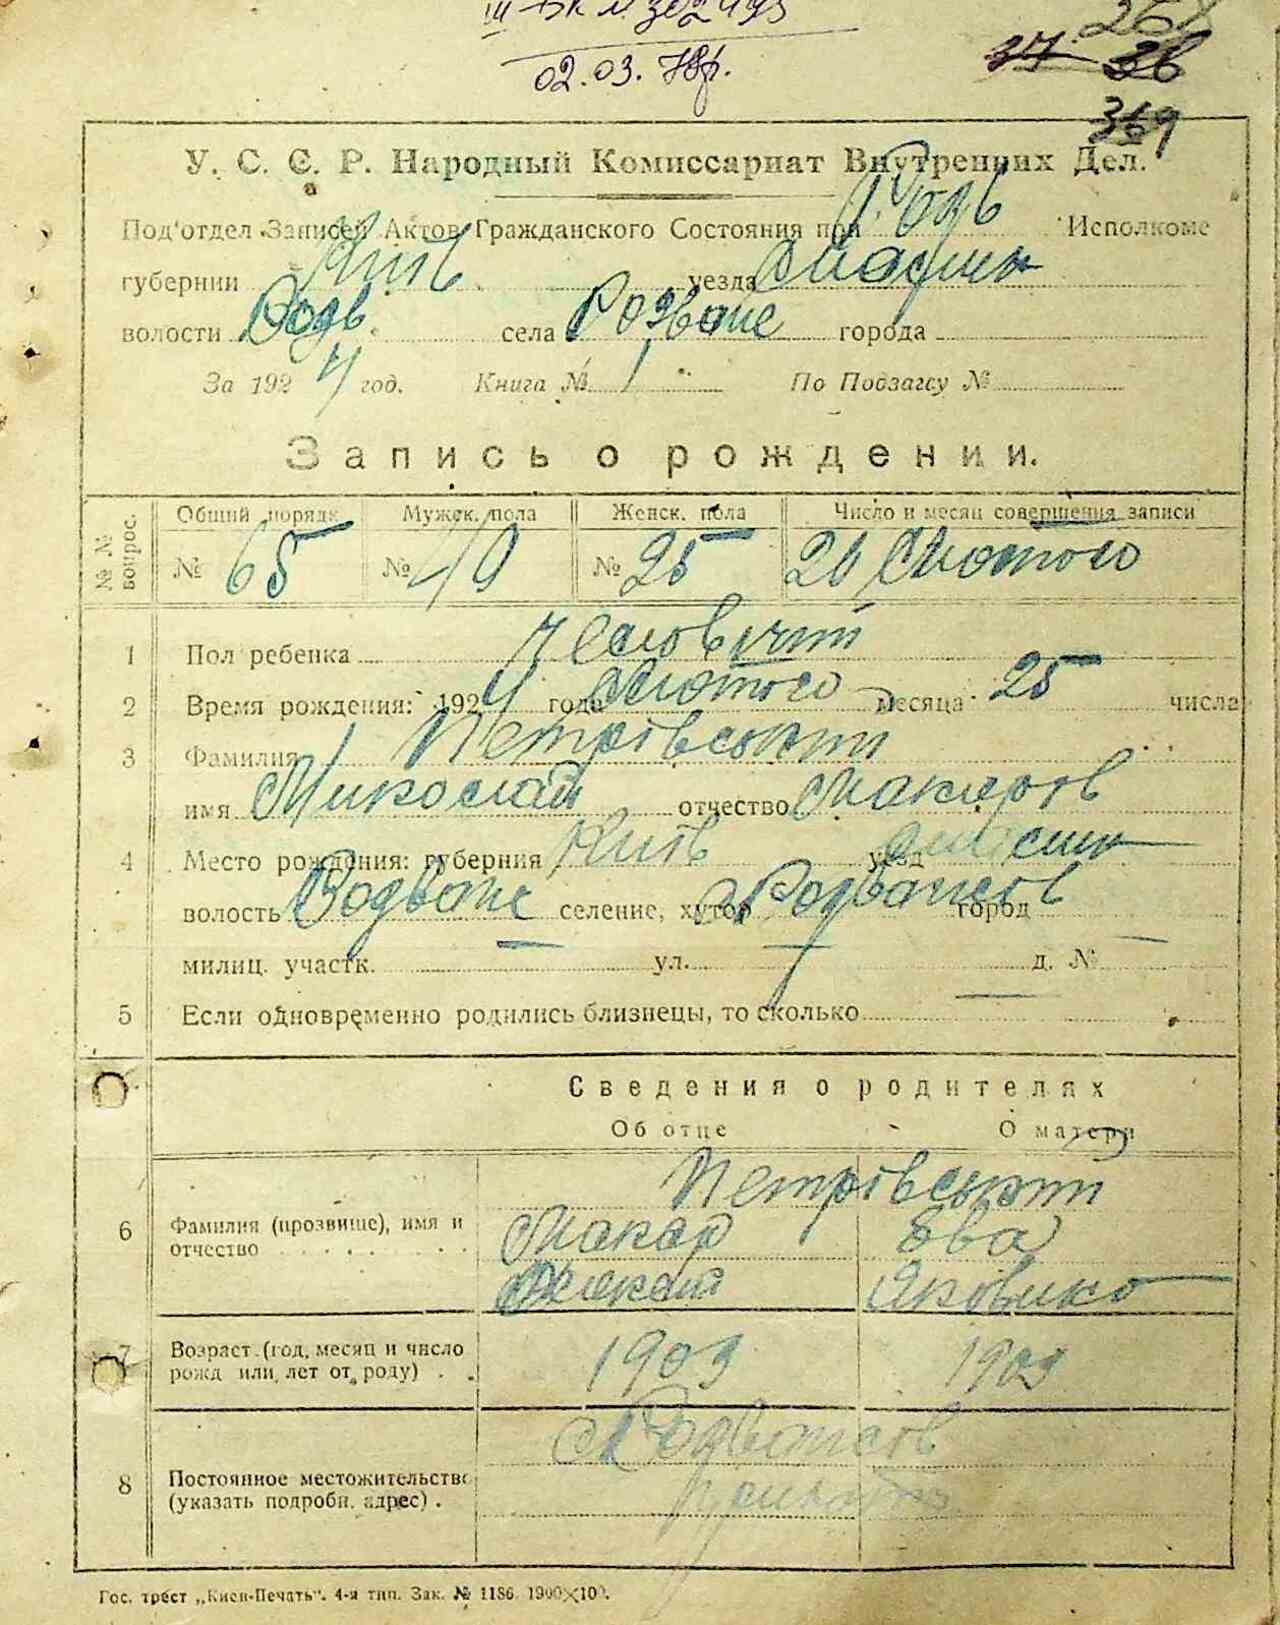 02.03.78р.
37 36
369
У. С. С. Р. Народный Комиссариат Внутренних Дел.
Под'отдел Записей Актов Гражданского Состояния при Розв Исполкоме
губернии Київ уезда
волости Розв села Розваже города
За 1924 год. Книга № 1 По Подзагсу №
Запись о рождении.
№ № вопрос. Общий порядк. Мужск. пола Женск. пола Число и месяц совершения записи
№ 65 № 40 № 25 26 Лютого
1 Пол ребенка Чоловічий
2 Время рождения: 1924 года Лютого месяца 25 числа
3 Фамилия Петрівський
имя Миколай отчество Макарів
4 Место рождения: губерния Київ уезд
волость Розваже селение, хутор город
милиц. участк. — ул. — д. № —
5 Если одновременно родились близнецы, то сколько —
Сведения о родителях
Об отце О матери
Петрівський
6 Фамилия (прозвище), имя и Макар Ева
отчество Яковівна
7 Возраст (год, месяц и число 1903 1903
рожд или лет от роду)
8 Постоянное местожительство
(указать подробн. адрес)
Гос. трест „Киев-Печать". 4-я тип. Зак. № 1186. 1900×100.